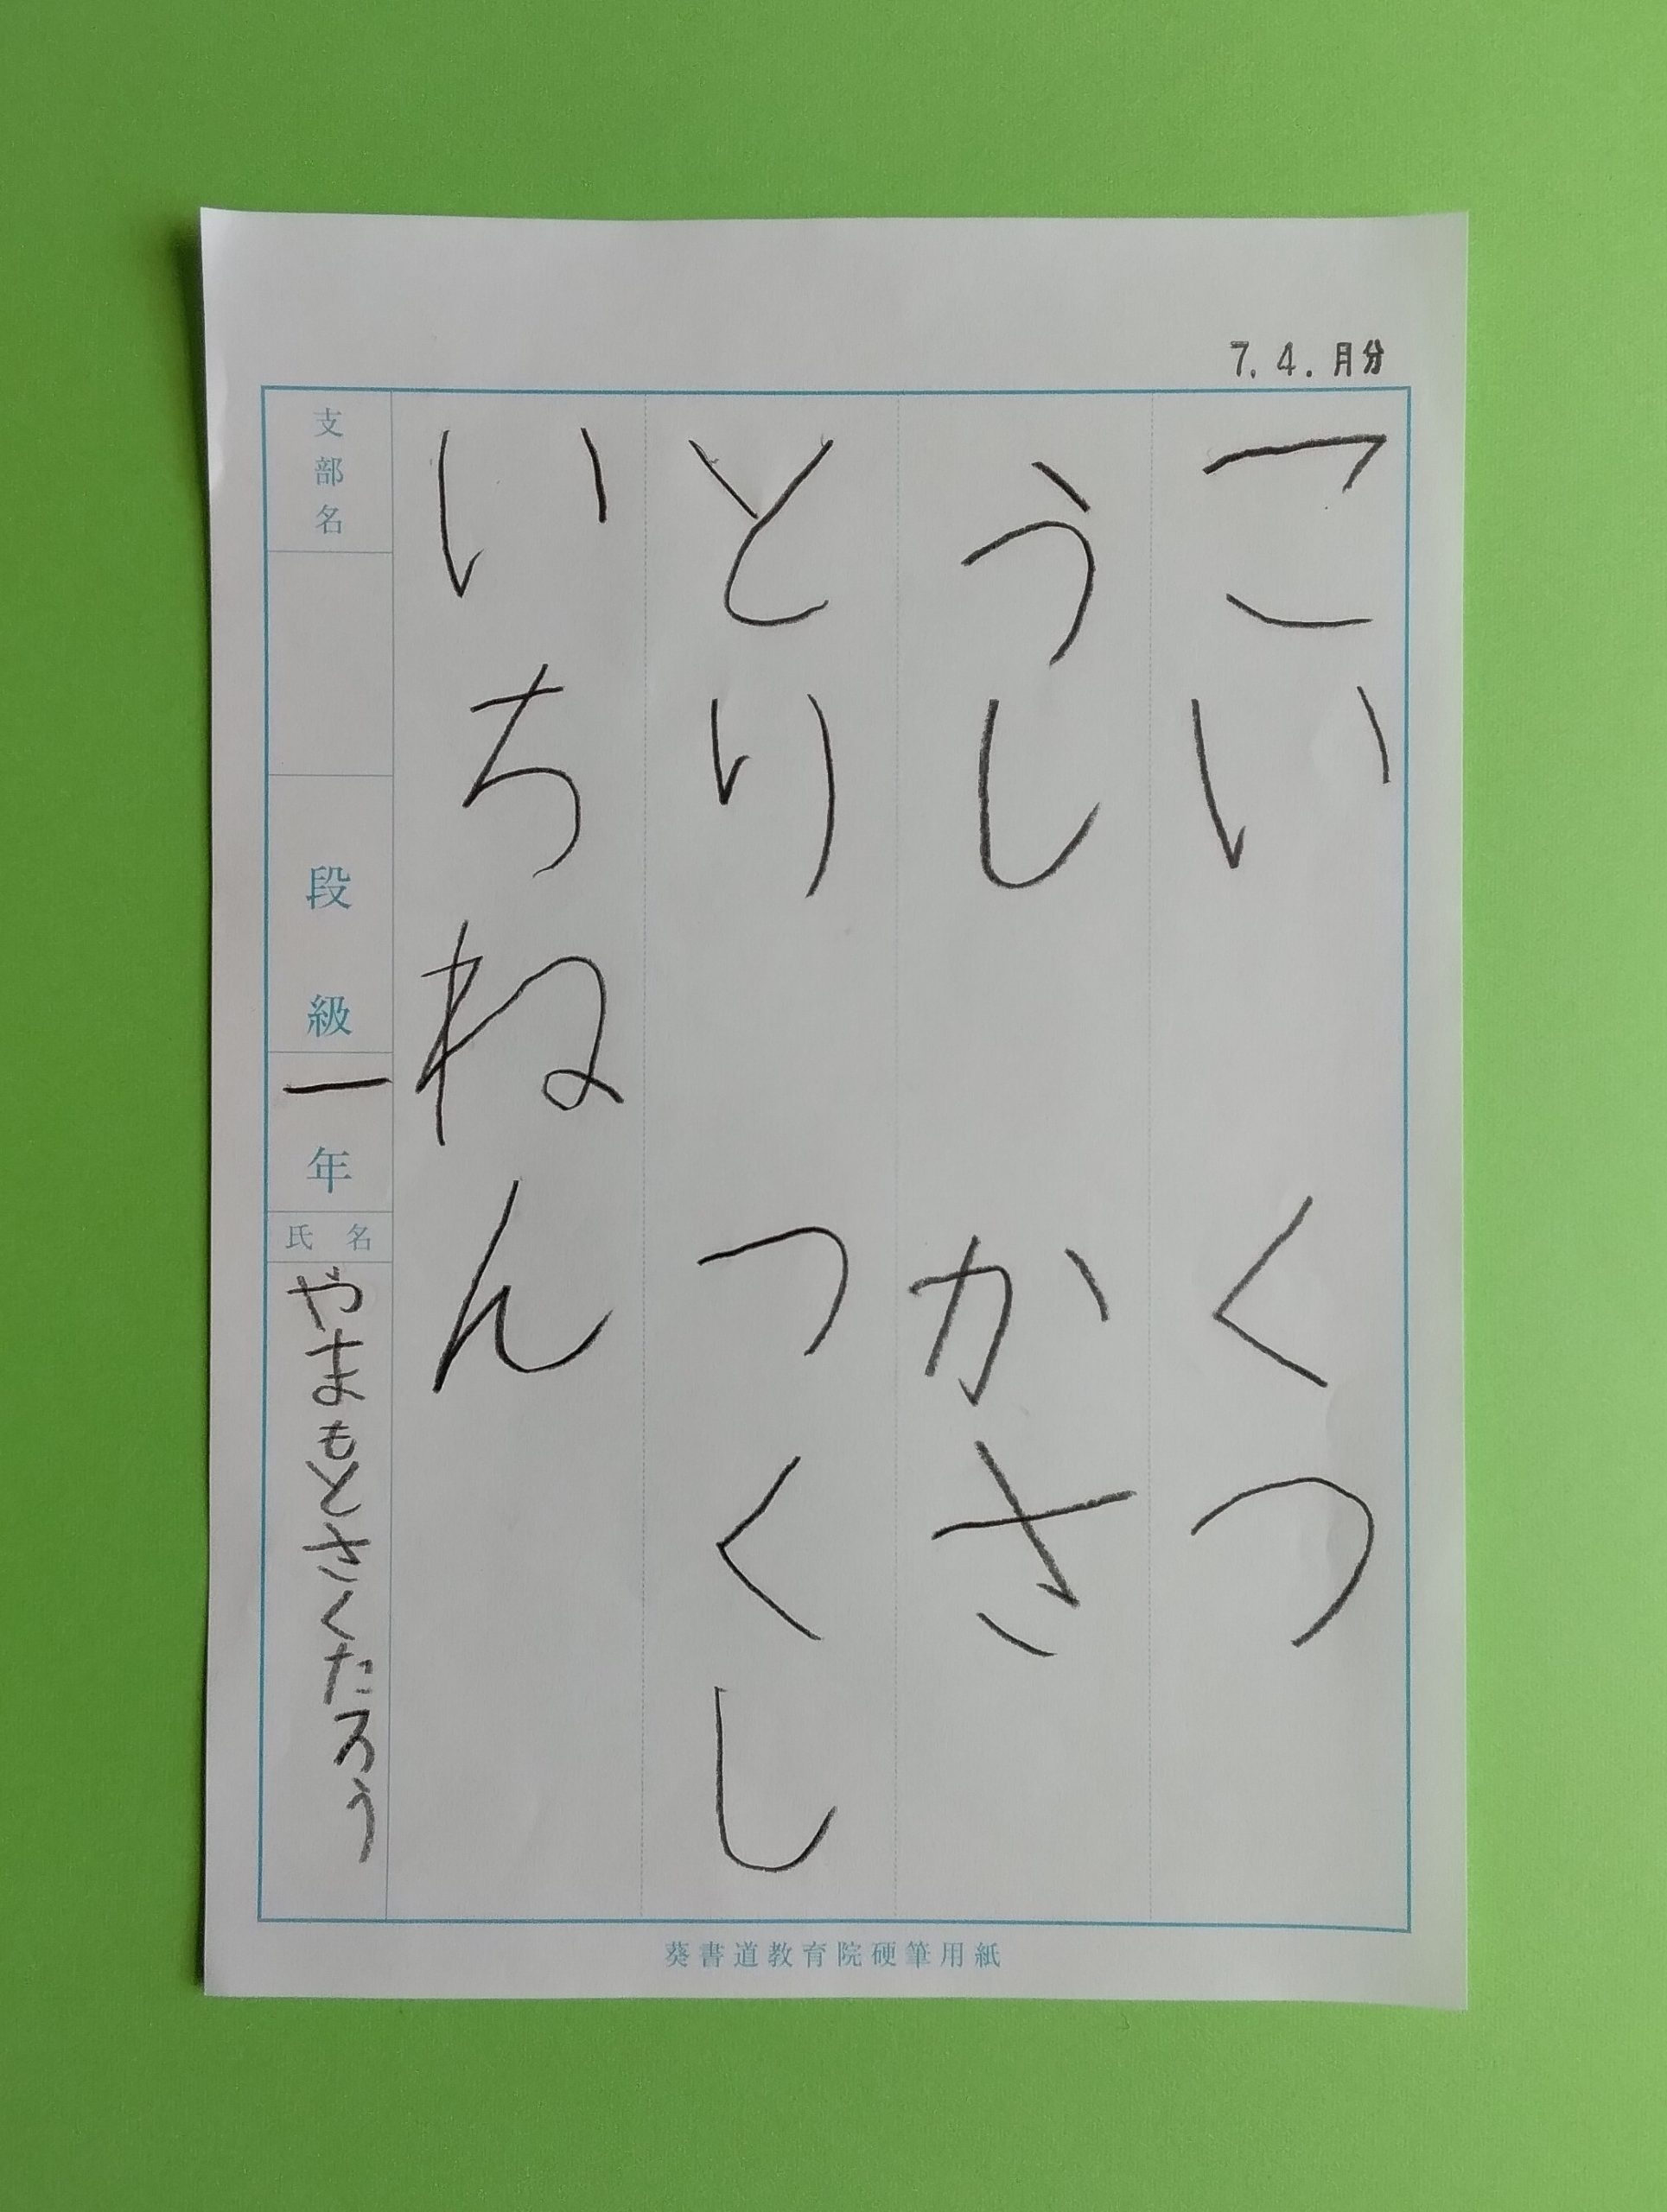 7.4.月分
こい くつ
うし かさ
とり つくし
いちねん
支部名
段級
一年
氏名
やまもとさくたろう
葵書道教育院硬筆用紙